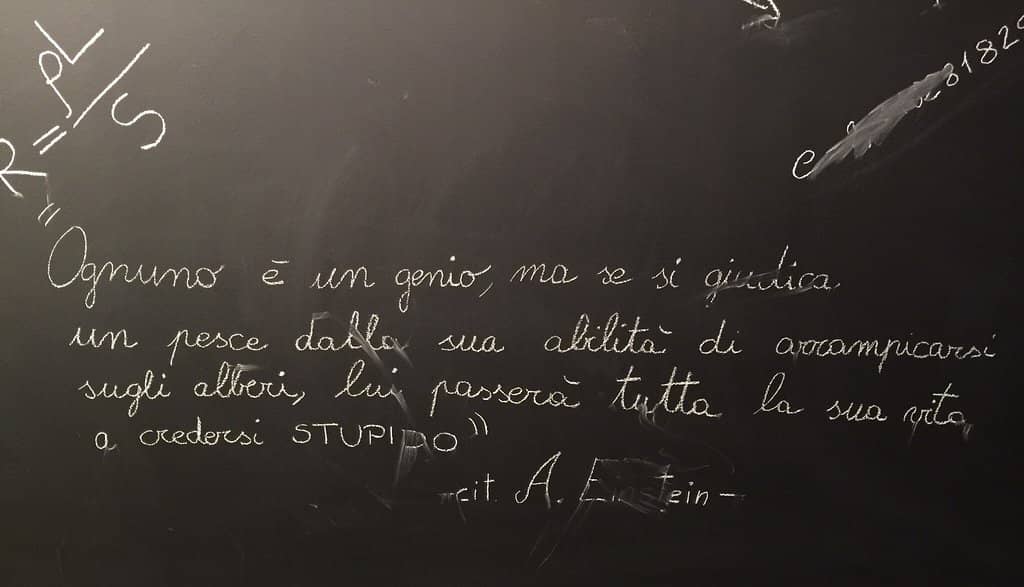 R = PL/S
81829
"Ognuno è un genio, ma se si giudica
un pesce dalla sua abilità di arrampicarsi
sugli alberi, lui passerà tutta la sua vita
a credersi STUPIDO"
-cit. A. Einstein-